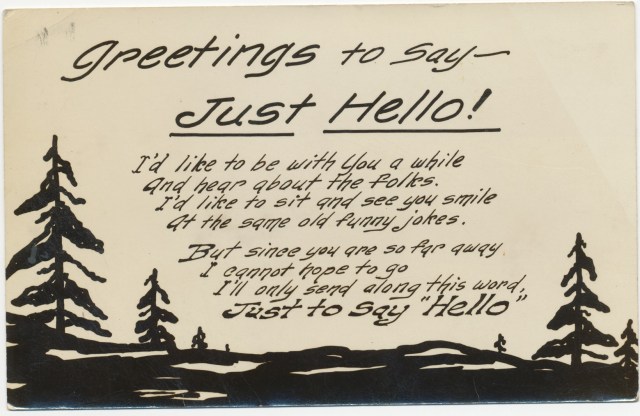 Greetings to say—
Just Hello!
I'd like to be with you a while
And hear about the folks.
I'd like to sit and see you smile
At the same old funny jokes.
But since you are so far away
I cannot hope to go
I'll only send along this word,
Just to say "Hello"